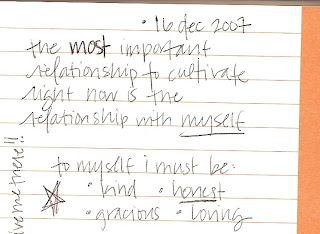 · 16 dec 2007
the most important
relationship to cultivate
right now is the
relationship with myself
to myself i must be:
· kind · honest
· gracious · loving